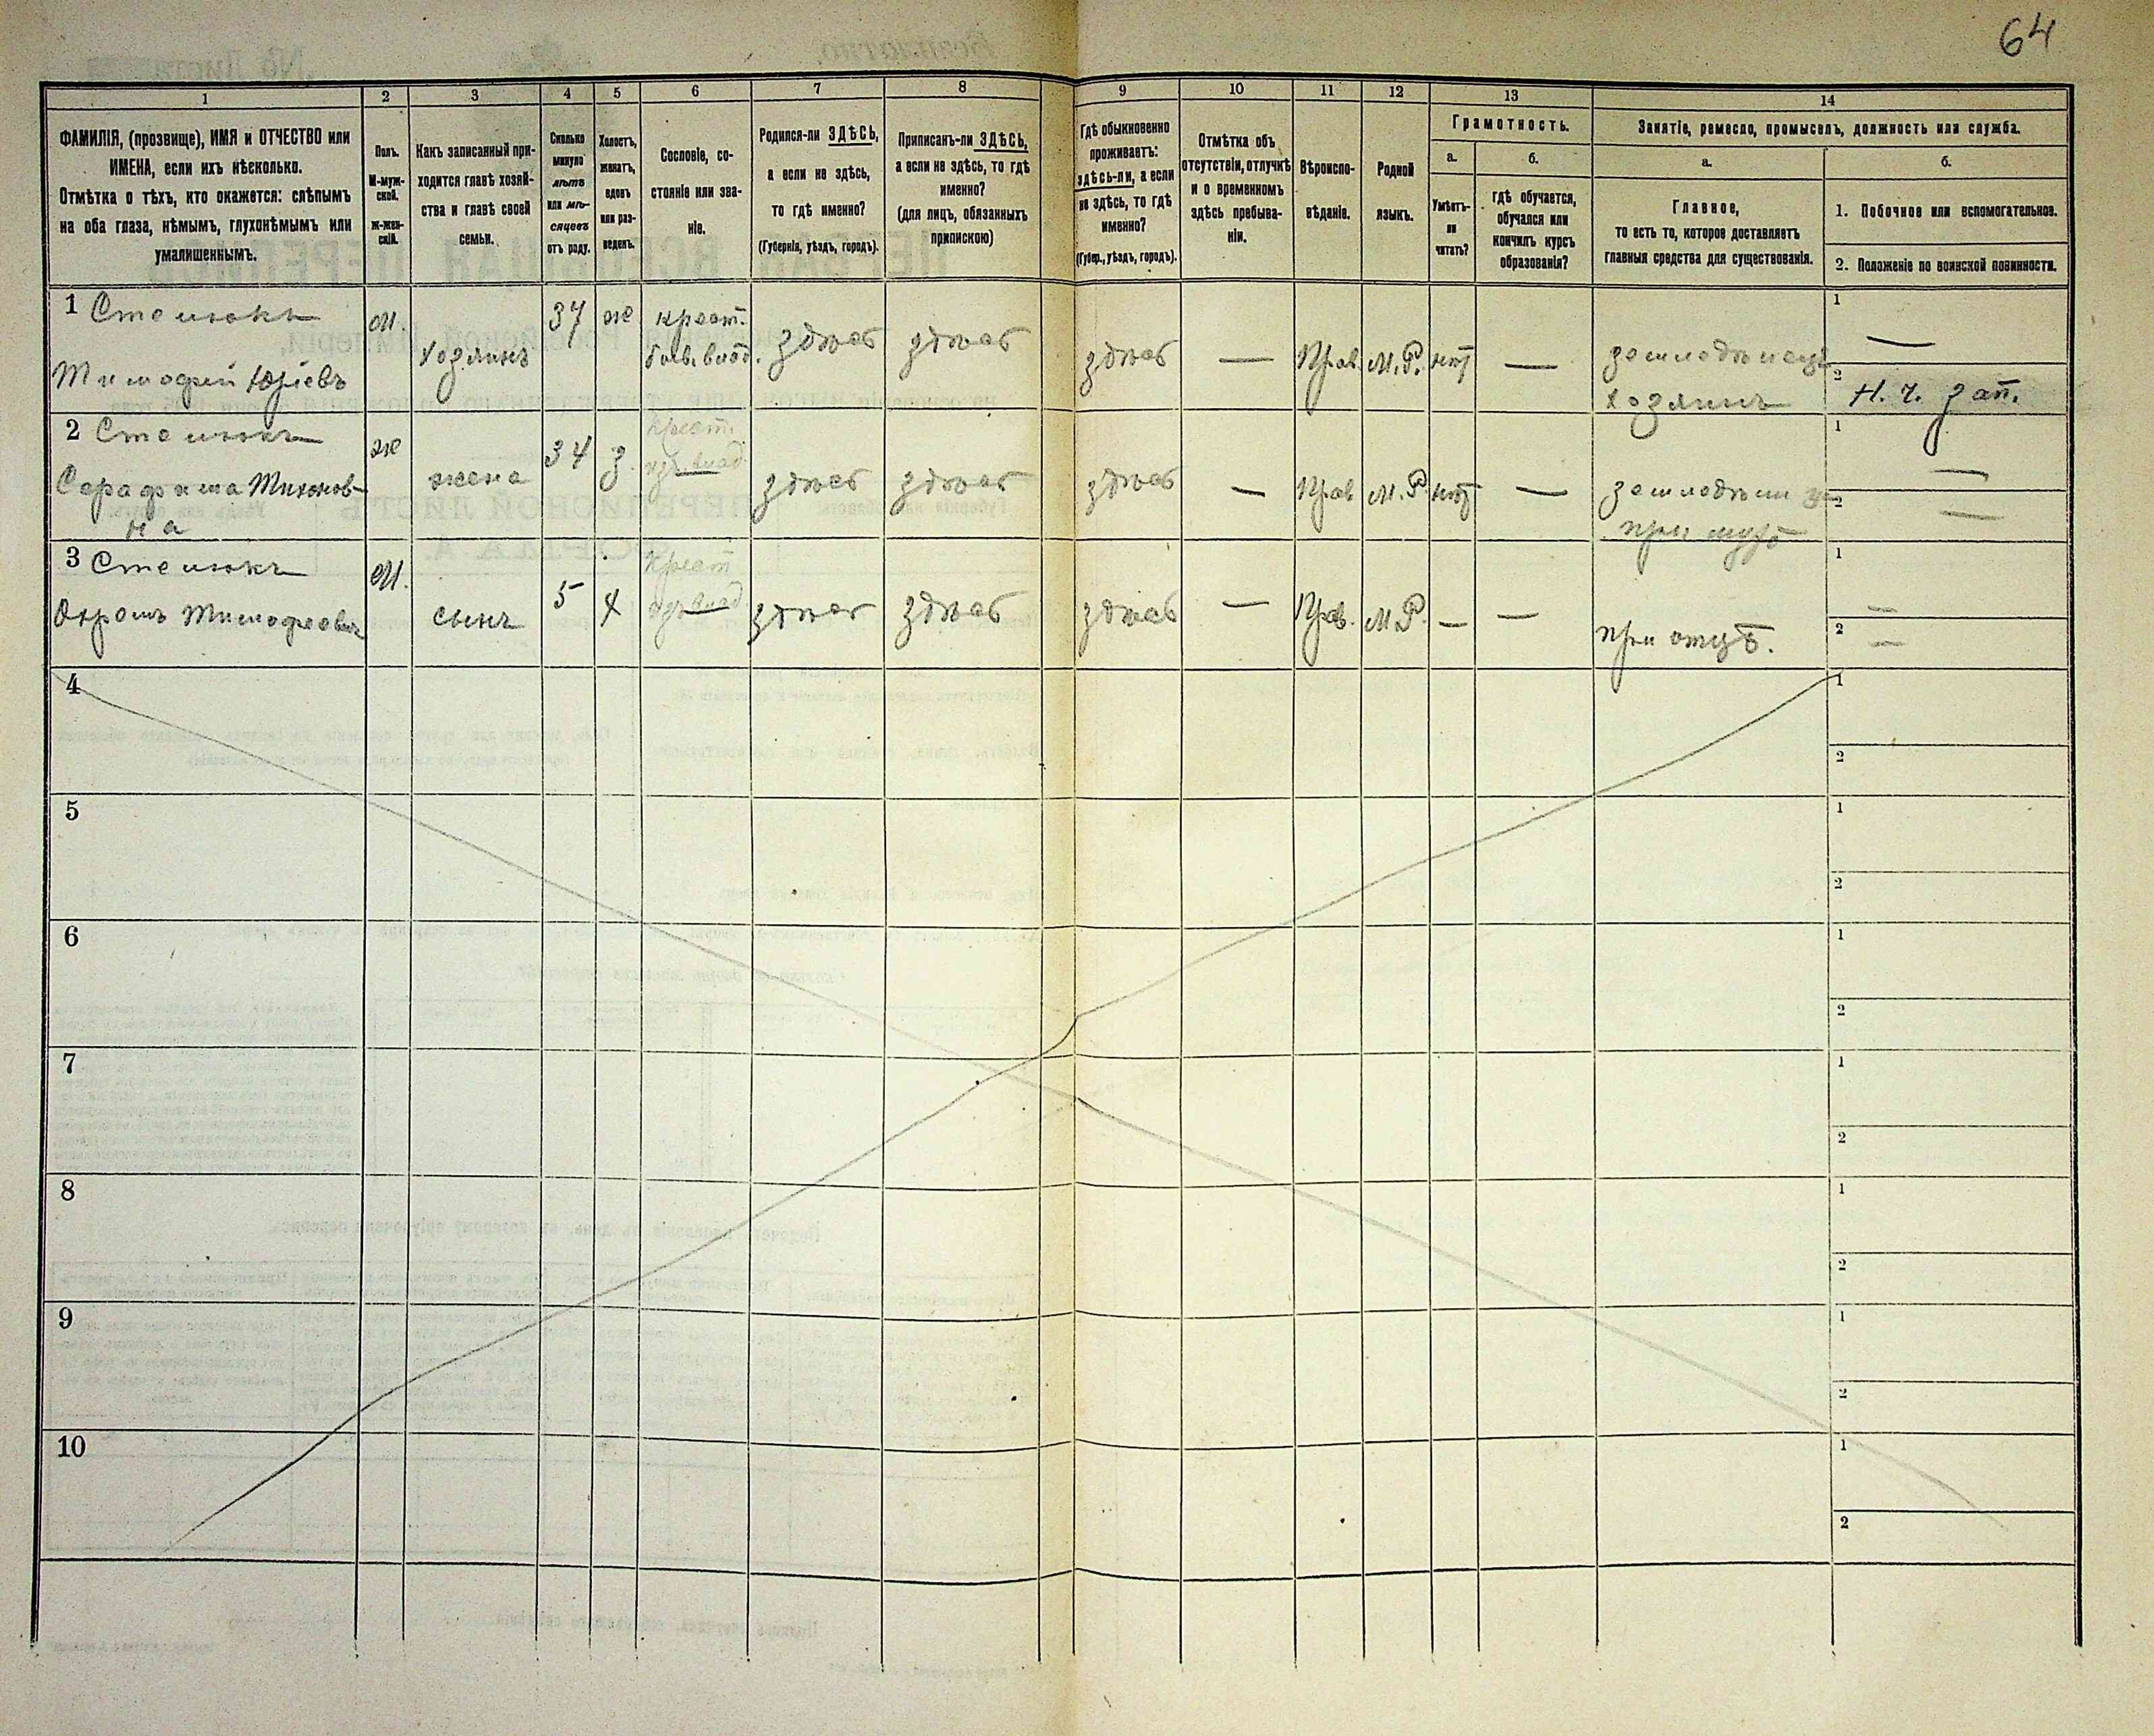 64
1
2
3
4
5
6
7
8
9
10
11
12
13
14
ФАМИЛІЯ, (прозвище), ИМЯ и ОТЧЕСТВО или
ИМЕНА, если ихъ нѣсколько.
Отмѣтка о тѣхъ, кто окажется: слѣпымъ
на оба глаза, нѣмымъ, глухонѣмымъ или
умалишеннымъ.
Полъ.
М-муж-
ской.
ж-жен-
скій.
Какъ записанный при-
ходится главѣ хозяй-
ства и главѣ своей
семьи.
Сколько
минуло
лѣтъ
или мѣ-
сяцевъ
отъ роду.
Холостъ,
женатъ,
вдовъ
или раз-
веденъ.
Сословіе, со-
стояніе или зва-
ніе.
Родился-ли ЗДѢСЬ,
а если не здѣсь,
то гдѣ именно?
(Губернія, уѣздъ, городъ).
Приписанъ-ли ЗДѢСЬ,
а если не здѣсь, то гдѣ
именно?
(для лицъ, обязанныхъ
припискою)
Гдѣ обыкновенно
проживаетъ:
здѣсь-ли, а если
не здѣсь, то гдѣ
именно?
(Губер., уѣздъ, городъ).
Отмѣтка объ
отсутствіи, отлучкѣ
и о временномъ
здѣсь пребыва-
ніи.
Вѣроиспо-
вѣданіе.
Родной
языкъ.
Грамотность.
а.
Умѣетъ-
ли
читать?
б.
гдѣ обучается,
обучался или
кончилъ курсъ
образованія?
Занятіе, ремесло, промыселъ, должность или служба.
а.
Главное,
то есть то, которое доставляетъ
главныя средства для существованія.
б.
1. Побочное или вспомогательное.
2. Положеніе по воинской повинности.
1
Тимофей Юріевъ
м.
Хозяинъ
37
ж
крест.
здѣсь
здѣсь
здѣсь
—
Прав.
М.Р.
нѣт
—
хозяинъ
1
—
2
Н. ч. зап.
2
Серафима Тихонов-
на
ж
жена
34
з.
крест.
влад.
здѣсь
здѣсь
здѣсь
—
Прав
М.Р.
нѣт
—
при мужѣ
1
—
2
—
3
Тимофеевъ
м.
сынъ
5
х
крест
влад
здѣсь
здѣсь
здѣсь
—
Прав.
М.Р.
—
—
при отцѣ.
1
—
2
—
4
1
2
5
1
2
6
1
2
7
1
2
8
1
2
9
1
2
10
1
2